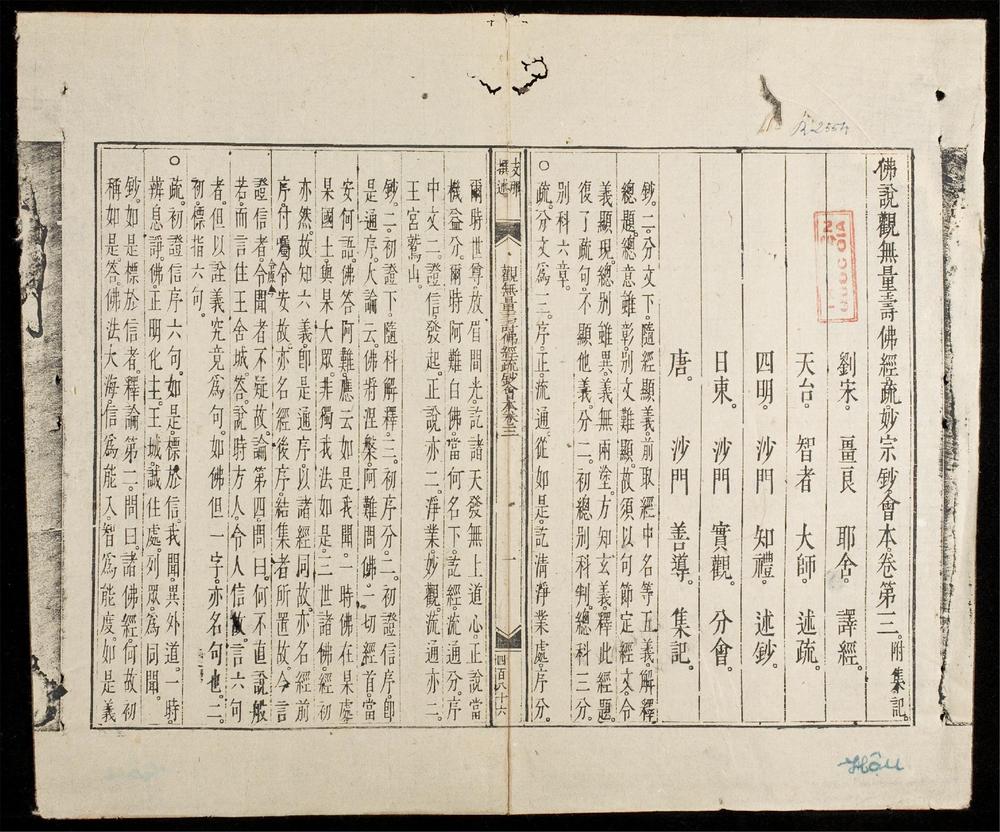 佛說觀無量壽佛經疏妙宗鈔會本卷第三。附集記。
劉宋。畺良耶舍。譯經。
天台。智者大師。述疏。
四明。沙門知禮。述鈔。
日東。沙門實觀。分會。
唐。沙門善導。集記。
鈔。二。分文下。隨經顯義。前取經中名等五義。解釋
總題。總意雖彰。別文難顯。故須以句節定經文。令
義顯現。總別雖異。義無兩塗。方知玄義。釋此經題。
復了疏句。不顯他義。分二。初總別科判。總科三分。
別科六章。
○疏。分文為三。序。正。流通。從如是。訖清淨業處。序分。
支那撰述
觀無量壽佛經疏鈔會本卷三
一
四百八十六
爾時世尊放眉間光。訖諸天發無上道心。正說當
機益分。爾時阿難白佛。當何名下。訖經。流通分。序
中文二。證信。發起。正說亦二。淨業。妙觀。流通亦二。
王宮。鷲山。
鈔。二。初證下。隨科解釋。三。初序分。二。初證信序。即
是通序。大論云。佛將涅槃。阿難問佛。一切經首。當
安何語。佛答阿難。應云如是我聞。一時佛在某處
某國土與某大眾。非獨我法如是。三世諸佛。經初
亦然。故知六義。即是通序。以諸經同故。亦名經前
序。付囑令安故。亦名經後序。結集者所置故。今言
證信者。令聞者不疑故。論第四。問曰。何不直說般
若。而言住王舍城。答。說時方人。令人信故。言六句
者。但以詮義究竟為句。如佛但一字。亦名句也。二。
初。標指六句。
○疏。初證信序六句。如是。標於信。我聞。異外道。一時。
辨息諍。佛。正明化主。王城。識住處。列眾。為同聞。
鈔。如是標於信者。釋論第二。問曰。諸佛經。何故初
稱如是。答。佛法大海。信為能入。智為能度。如是義
QUOC GIA
R.2554
Hậu